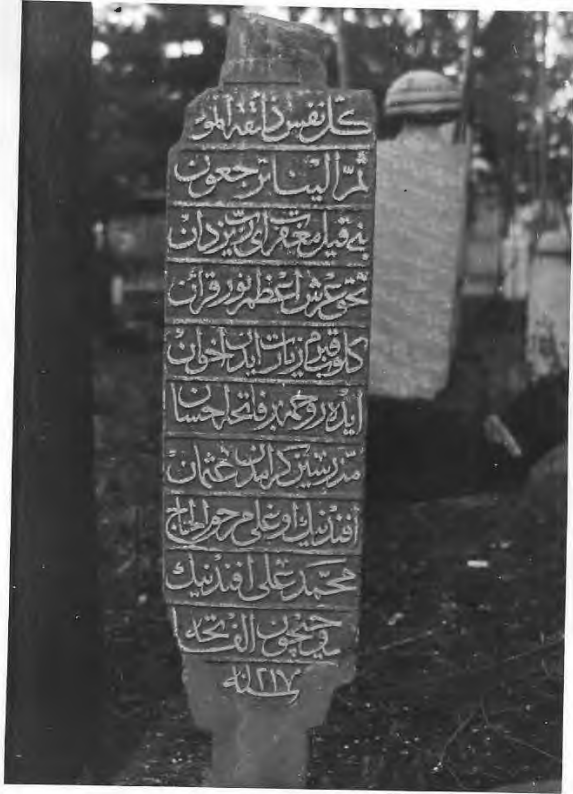 كل نفس ذائقه الموت
ثم الينا ترجعون
بنى قيل مغفرت اى رب يزدان
بحق عرش اعظم نور قرآن
كلوب قبرم زيارت ايدن اخوان
ايده روحمه بر فتحه احسان
مدرسين كرامدن عثمان
افندينك اوغلى مرحوم الحاج
محمد على افندينك
روحيچون الفتحه
سنه ١٢١٧